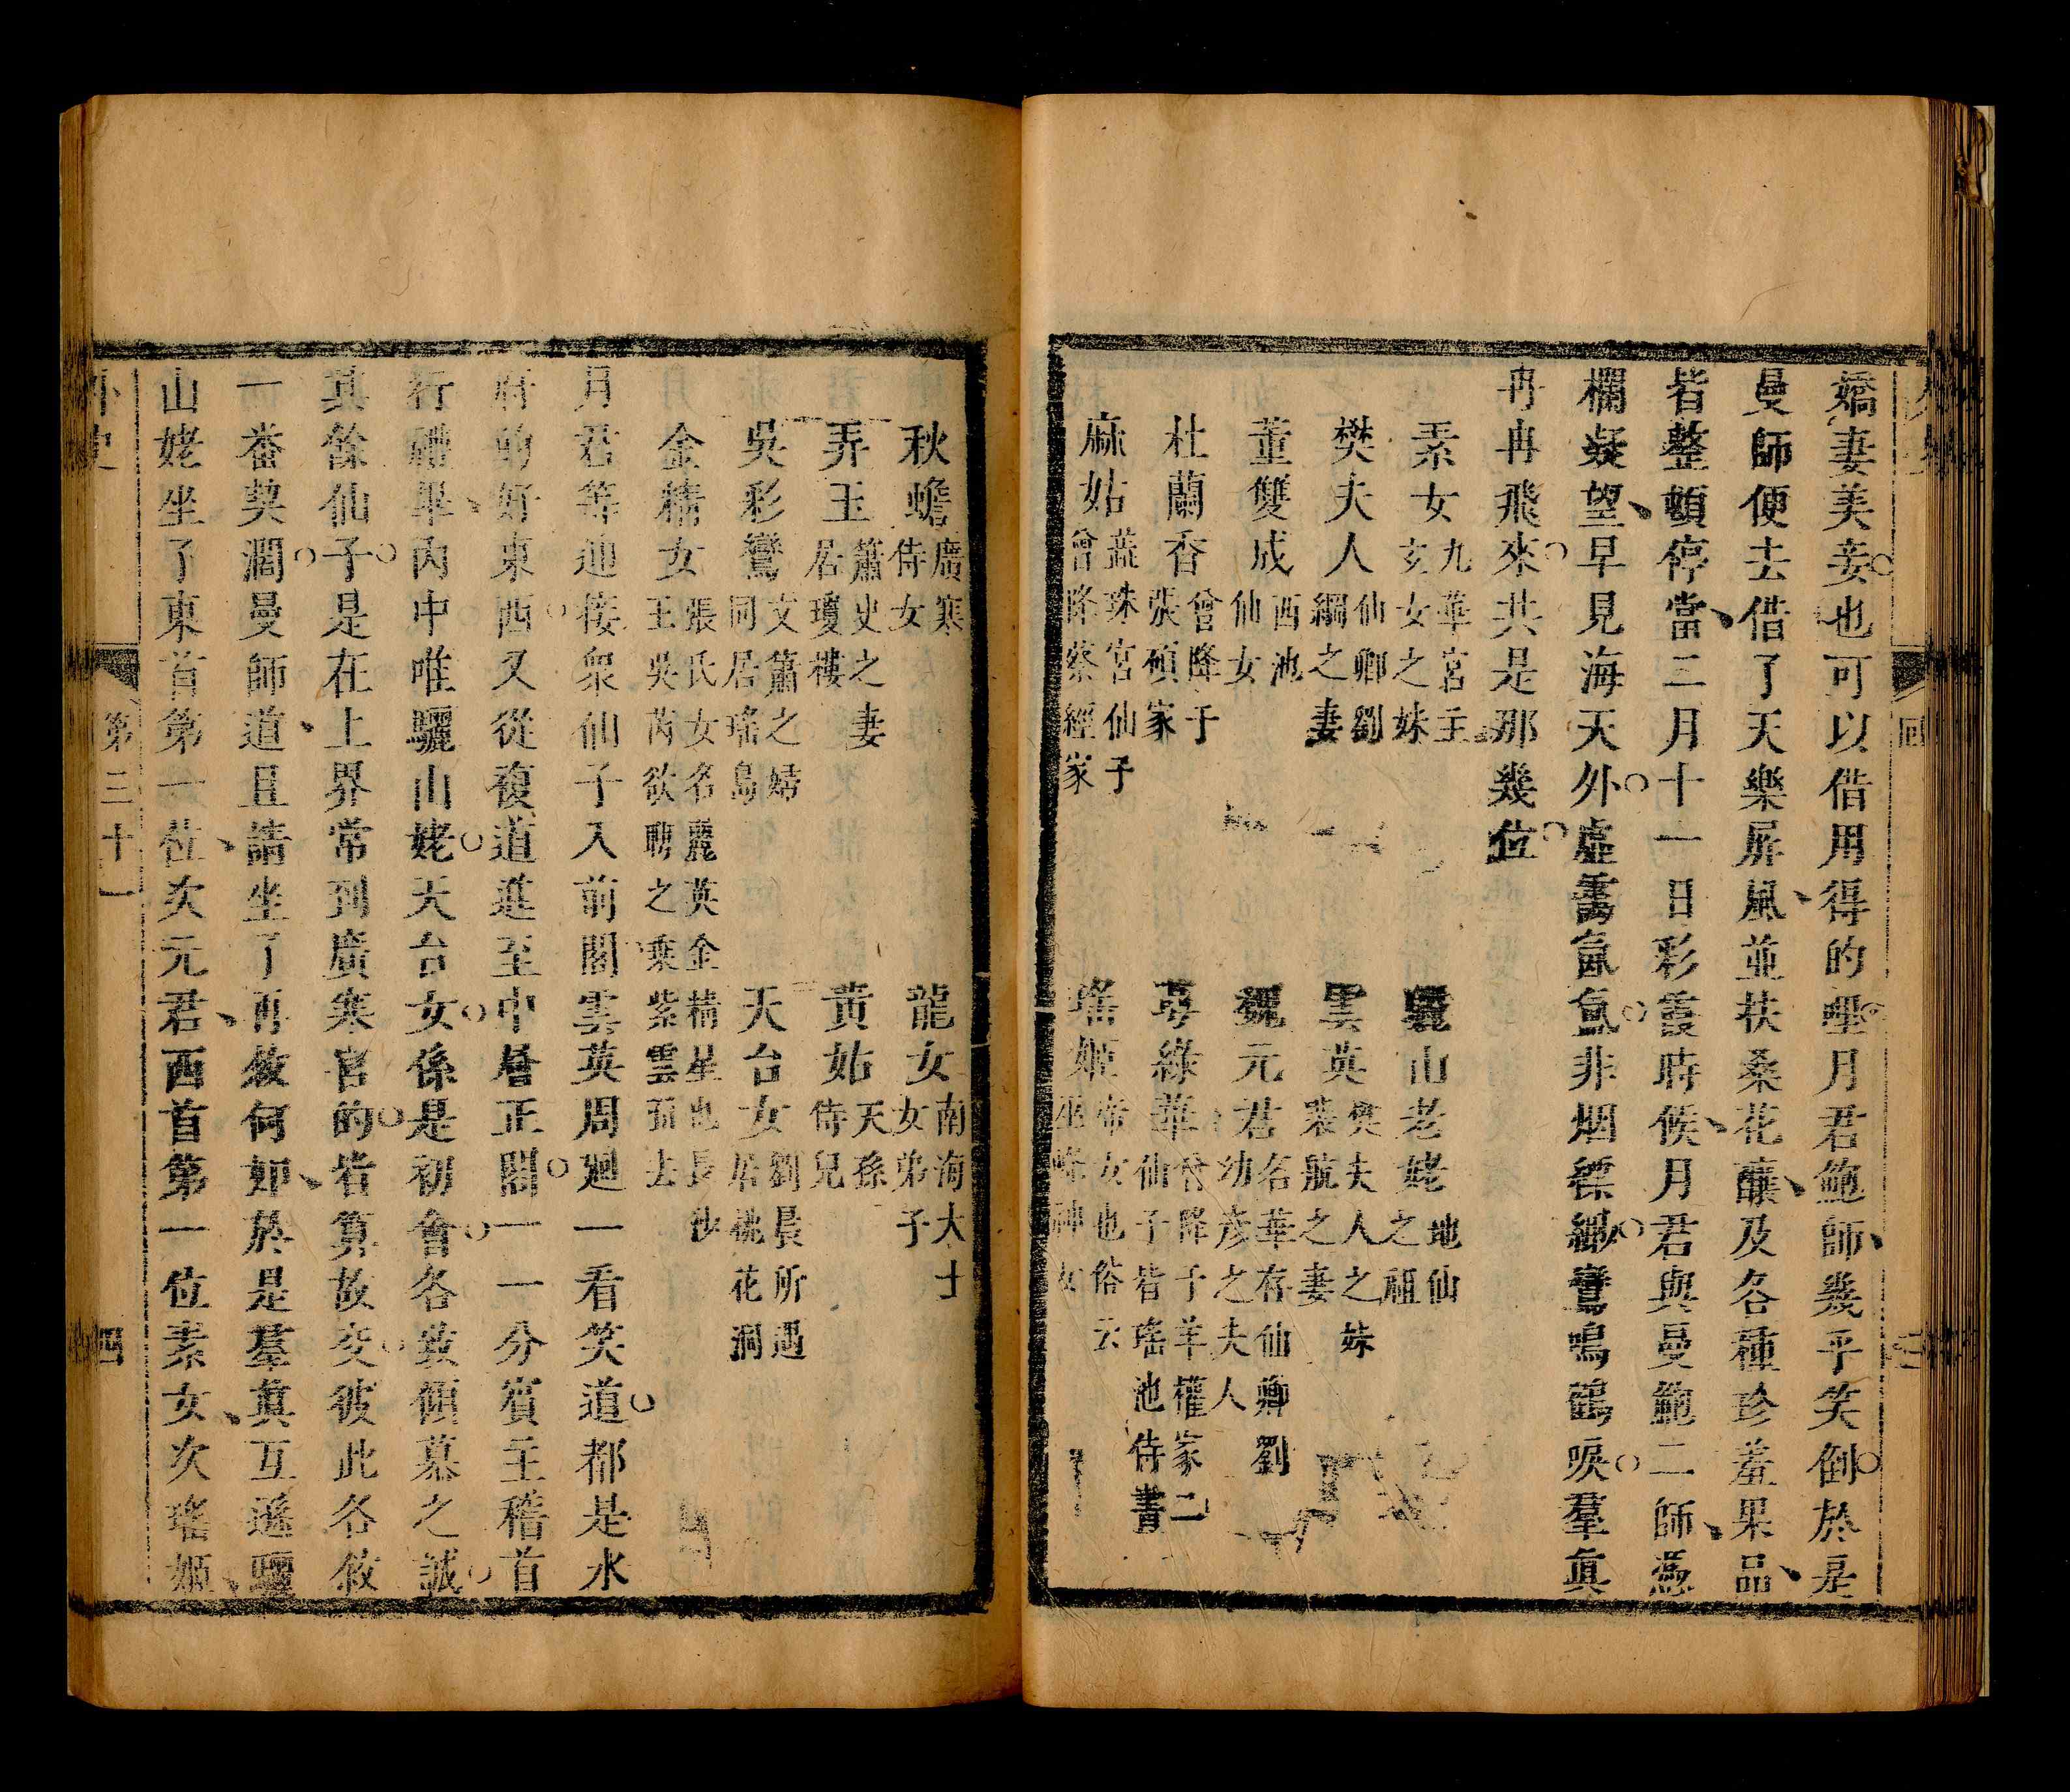 嬌妻美妾也可以借用得的哩月君鮑師幾乎笑倒於是
曼師便去借了天樂屏風並扶桑花釀及各種珍羞果品
皆整頓停當二月十一日彩霞時候月君與曼鮑二師憑
欄凝望早見海天外虛靄氤氳非烟縹緲鸞鳴鶴唳羣眞
冉冉飛來共是那幾位
素女九華宮主玄女之妹
驪山老姥地仙之祖
樊夫人仙卿劉綱之妻
雲英樊夫人之妹裴航之妻
董雙成西池仙女
魏元君名華存仙卿劉幼彥之夫人
杜蘭香曾降于張碩家
萼綠華曾降于羊權家二仙子皆瑤池侍書
麻姑蕊珠宮仙子曾降蔡經家
瑤姬帝女也俗云巫峰神女
秋蟾廣寒侍女
龍女南海大士女弟子
弄玉簫史之妻居瓊樓
黃姑天孫侍兒
吳彩鸞文簫之婦同居瑤島
天台女劉晨所遇居桃花洞
金精女張氏女名麗英金精星也長沙王吳芮欲聘之乘紫雲而去
月君等迎接衆仙子入前閣雲英周廻一看笑道都是水
府的好東西又從複道進至中層正閣一一分賓主稽首
行禮畢內中唯驪山姥天台女係是初會各致傾慕之誠
其餘仙子是在上界常到廣寒宮的皆算故交彼此各敘
一番契濶曼師道且請坐了再敘何如於是羣眞互遜驪
山姥坐了東首第一位次元君西首第一位素女次瑤姬
外史
第三十一
四